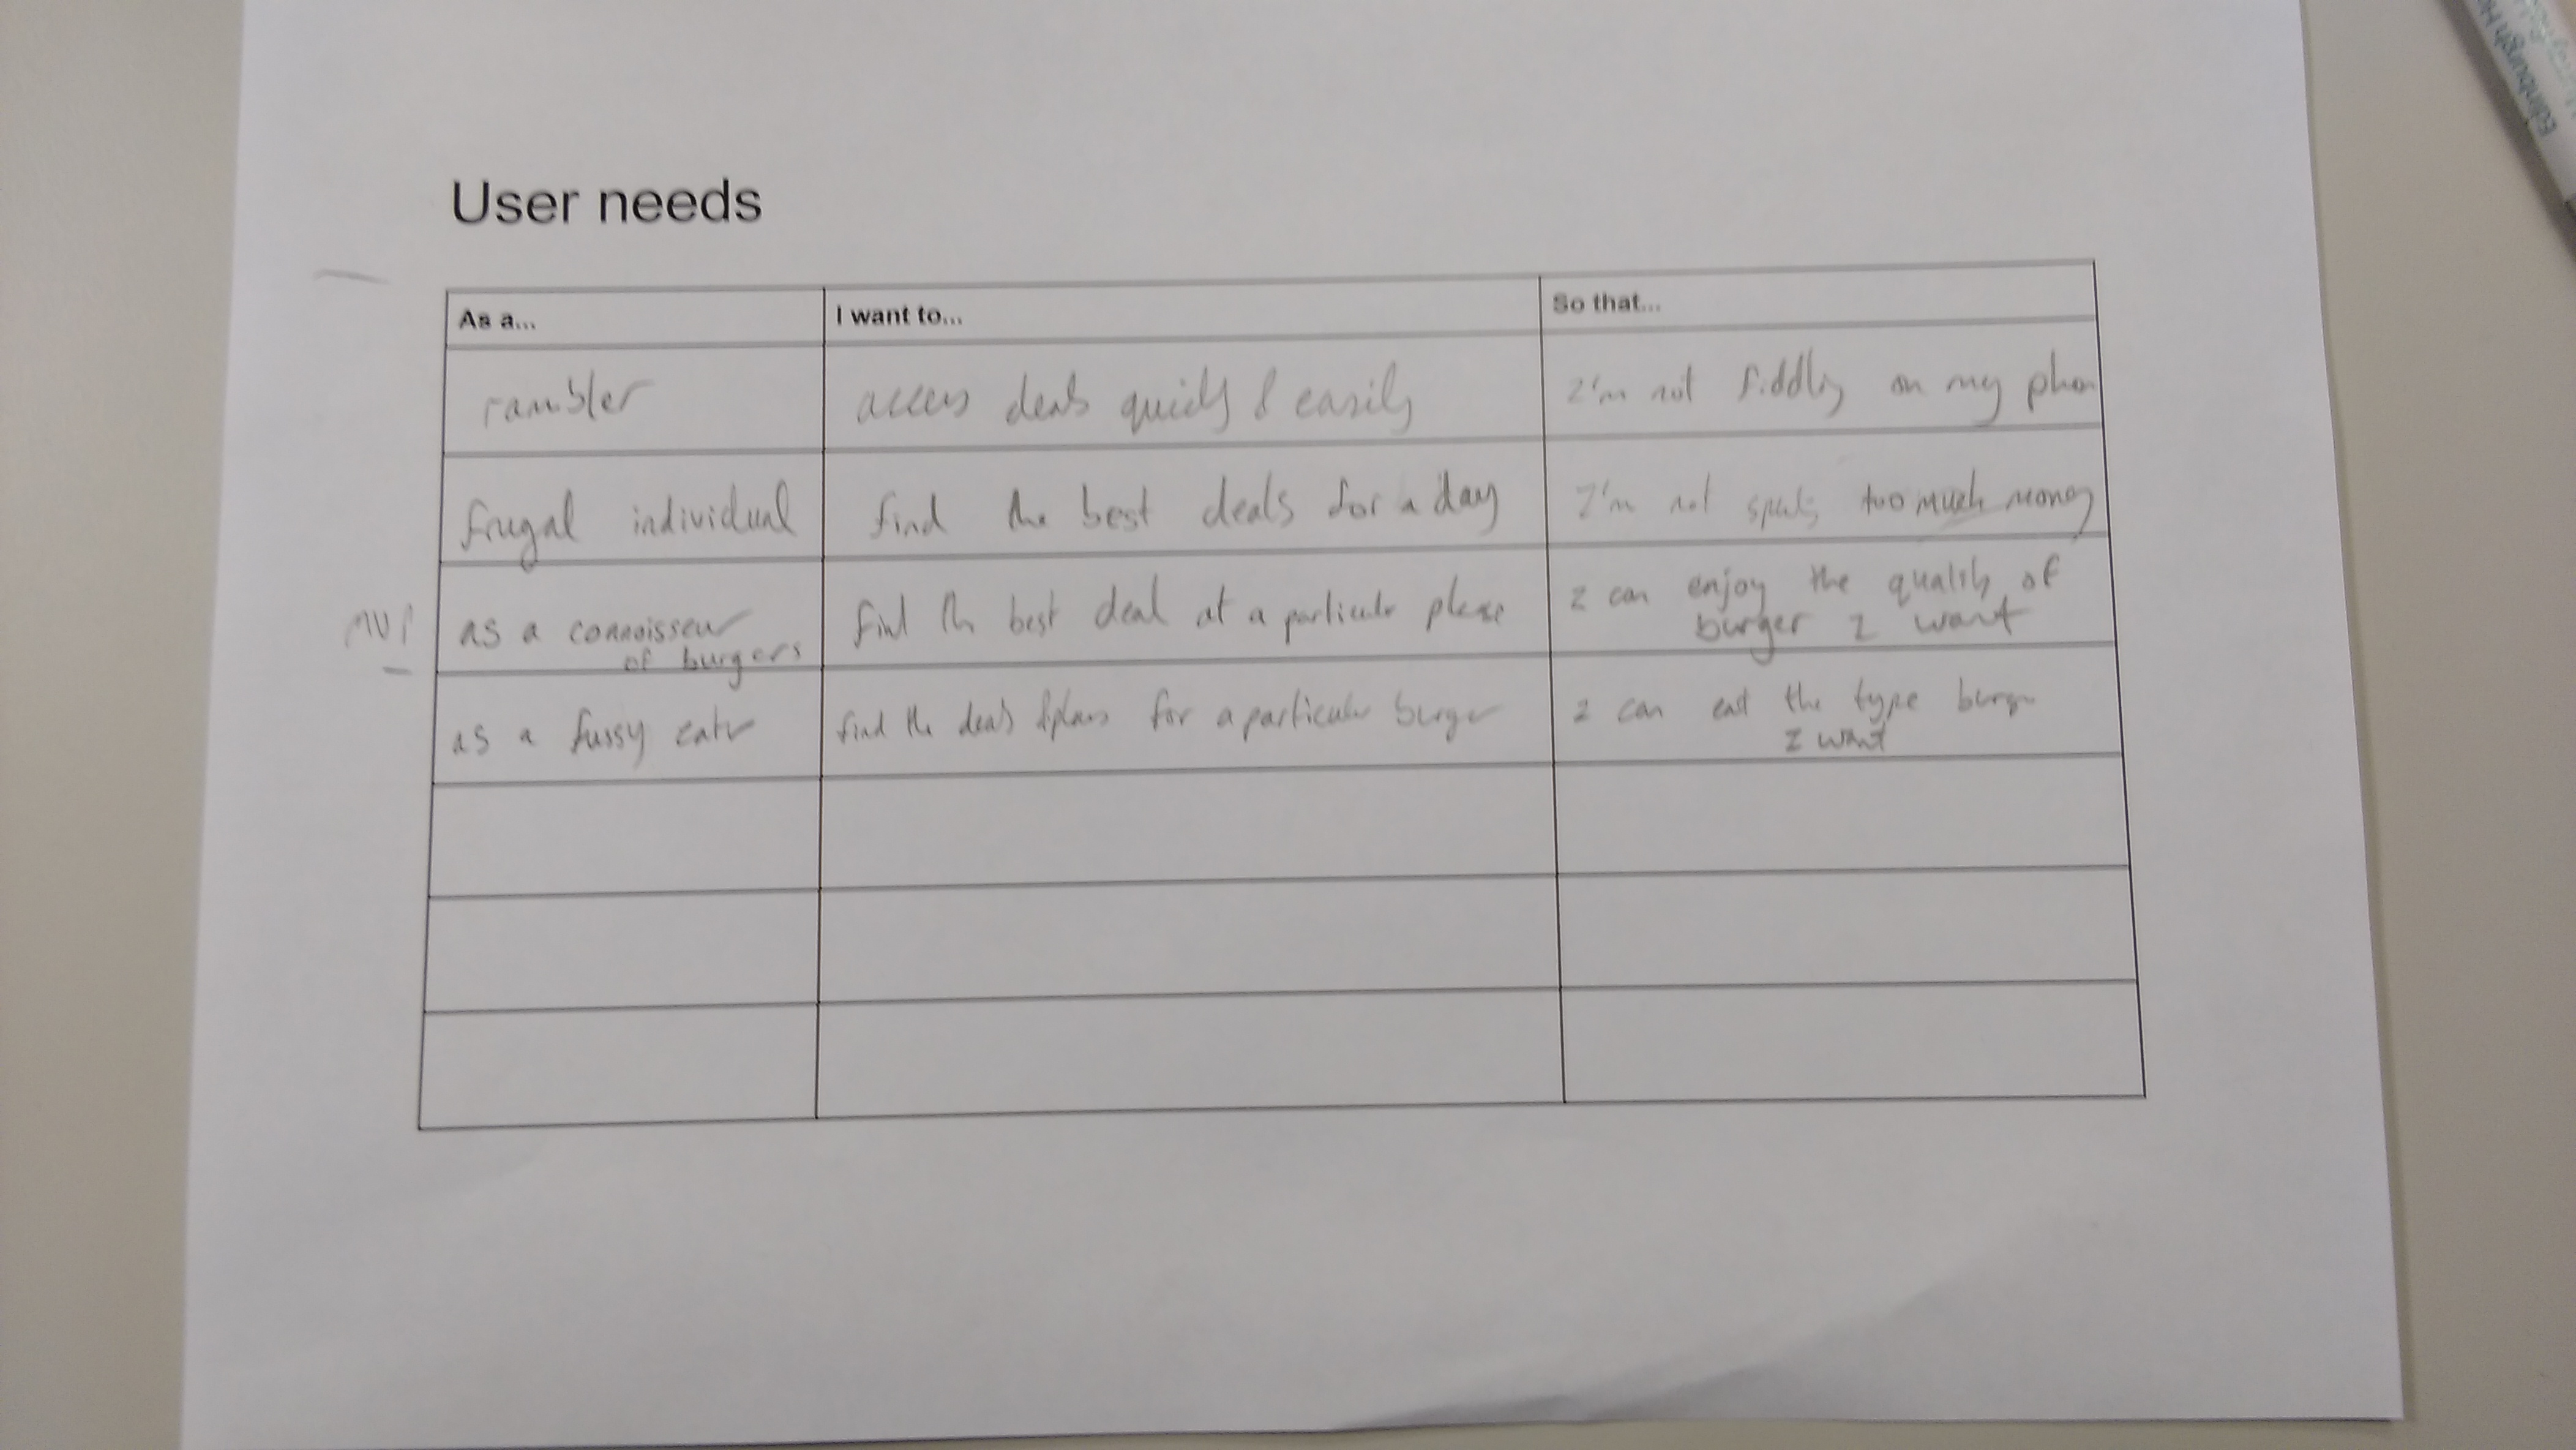 User needs
As a...
I want to...
So that...
rambler
access deals quickly & easily
I'm not fiddling on my phon
frugal individual
find the best deals for a day
I'm not too much money
MVP
as a connoisseur
of burgers
find the best deal at a particular
I can enjoy the quality of
burger I want
as a fussy eater
find the deals for a particular burger
I can eat the type burger
I want
Edinburgh